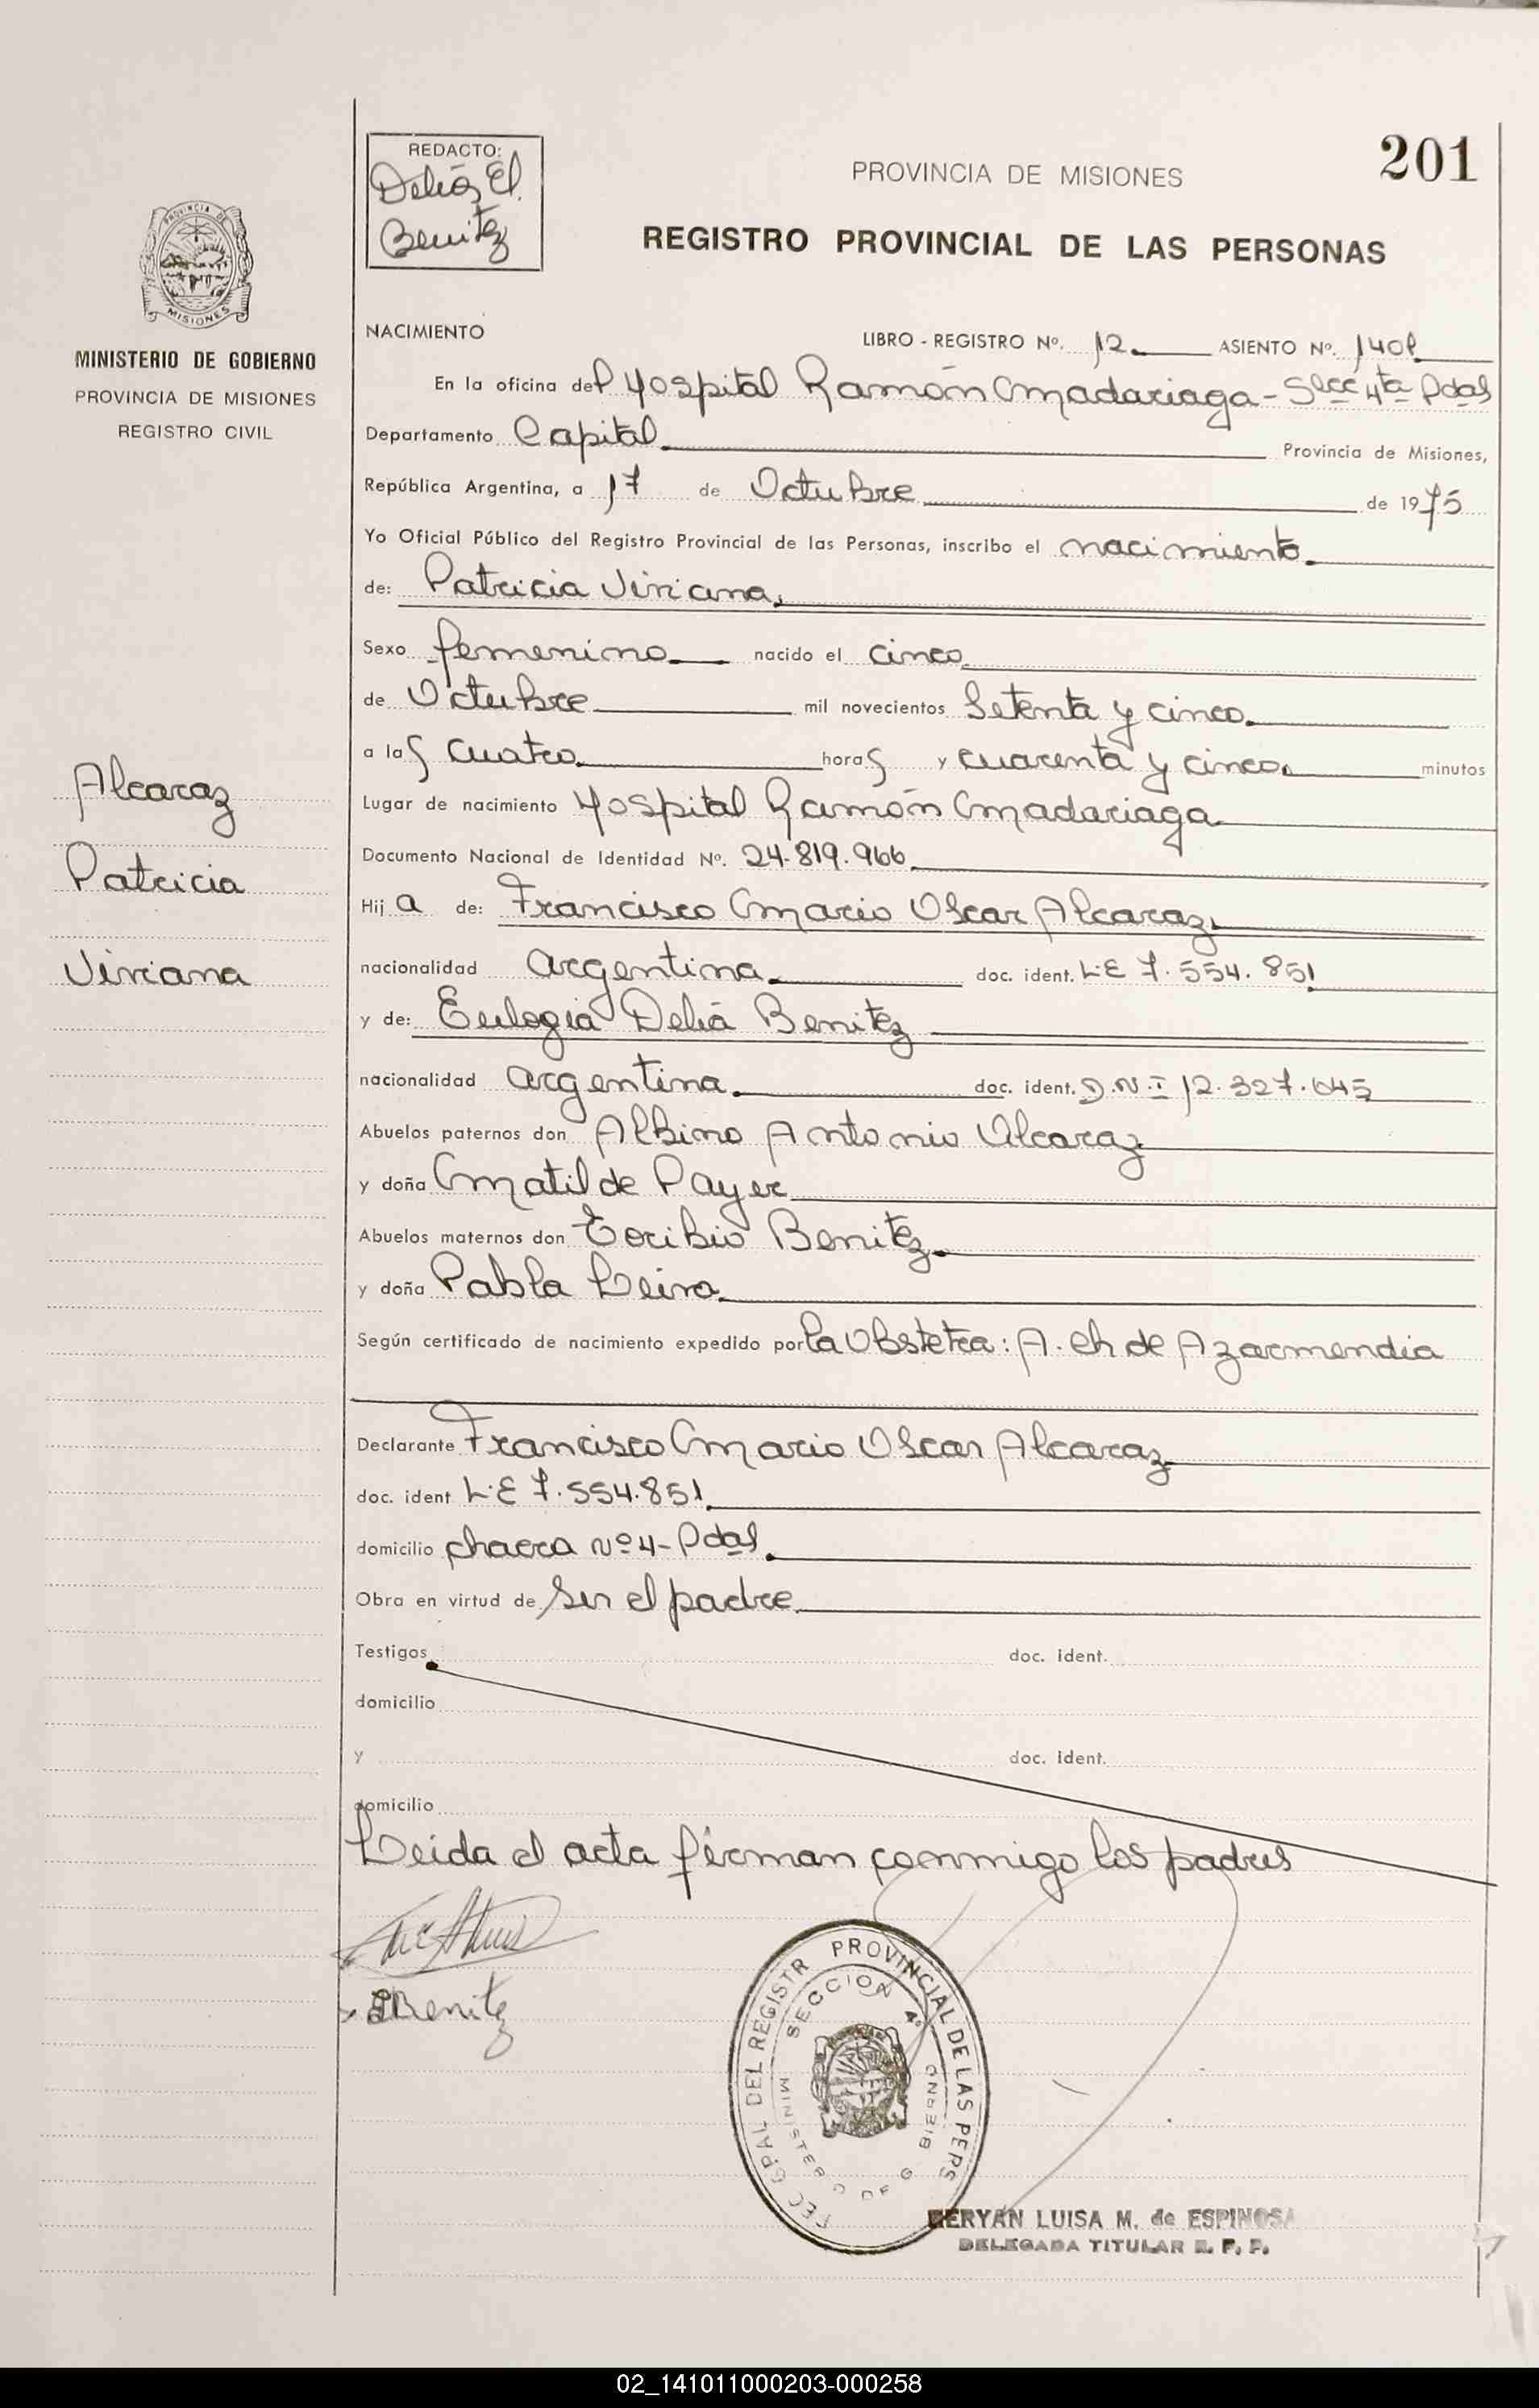 201
REDACTO:
Delia E.
Benitez
PROVINCIA DE MISIONES
REGISTRO PROVINCIAL DE LAS PERSONAS
PROVINCIA DE
MISIONES
MINISTERIO DE GOBIERNO
PROVINCIA DE MISIONES
REGISTRO CIVIL
NACIMIENTO LIBRO - REGISTRO Nº. 12. ASIENTO Nº.
En la oficina del Hospital Ramón Madariaga - Secc 4ta Pdas
Departamento Capital Provincia de Misiones,
República Argentina, a 17 de Octubre de 1975
Yo Oficial Público del Registro Provincial de las Personas, inscribo el nacimiento.
de: Patricia Viviana.
Sexo femenino nacido el cinco
de Octubre mil novecientos Setenta y cinco.
a las cuatro horas y cuarenta y cinco. minutos
Lugar de nacimiento Hospital Ramón Madariaga
Documento Nacional de Identidad Nº. 24.819.966.
Hija de: Francisco Mario Oscar Alcaraz.
nacionalidad argentina. doc. ident. L.E 7.554.851
y de: Eulogia Delia Benitez
nacionalidad argentina. doc. ident. D.N.I 12.327.645
Abuelos paternos don Albino Antonio Alcaraz
y doña Matilde Payer
Abuelos maternos don Toribio Benitez.
y doña Pabla Leiva.
Según certificado de nacimiento expedido por la Obstetra: A. Ch de Azarmendia
Declarante Francisco Mario Oscar Alcaraz
doc. ident L.E 7.554.851
domicilio chacra Nº 4 - Pdas.
Obra en virtud de Ser el padre.
Testigos doc. ident.
domicilio
y doc. ident.
domicilio
Leida el acta firman conmigo los padres
Alcaraz
Patricia
Viviana
EBenitez
GPAL DEL REGISTR PROVINCIAL DE LAS PERS
SECCION 4º
MINISTERIO DE GOBIERNO
GERYAN LUISA M. de ESPINOSA
DELEGADA TITULAR R. P. P.
02_141011000203-000258